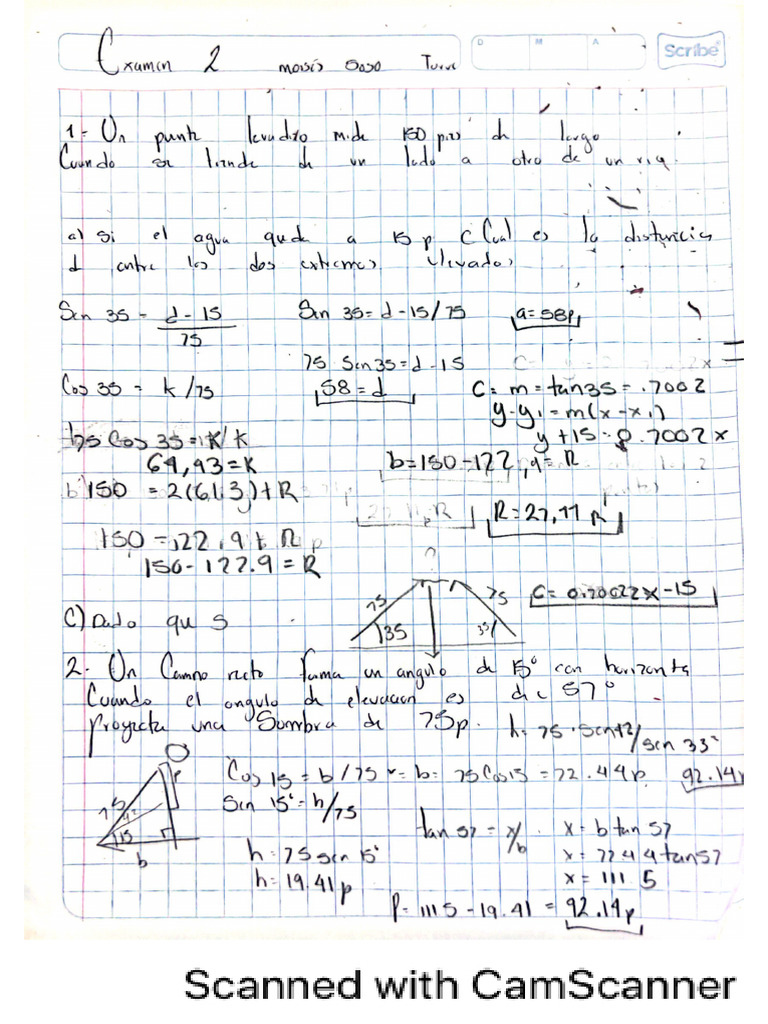 Examen 2 Moisés Sosa
D M A
Scribe
1- Un puente levadizo mide 150 pies de largo
Cuando se tiende de un lado a otro de un ria.
a) Si el agua queda a 15 p ¿Cual es la distancia
d entre los dos extremos elevados
Sen 35 = d - 15 / 75
Sen 35 = d - 15 / 75
a = 58p
75 Sen 35 = d - 15
Cos 35 = k / 75
58 = d
C = m = tan 35 = .7002
y - y1 = m(x - x1)
75 Cos 35 = k/k
y + 15 = 0.7002x
64,93 = K
b = 150 - 122,9 = R
b 150 = 2(61.3) + R
R = 27,11 R
150 = 122.9 + R
150 - 122.9 = R
C = 0.70022x - 15
75 75
35 35
C) Dado que S
2. Un Camno recto forma un angulo de 15° con horizonta
Cuando el angulo de elevacion es de 57°
Proyecta una Sombra de 75p.
h = 75 · sen42 / sen 33°
Cos 15 = b / 75 = b = 75 Cos 15 = 72.44p
92.14p
Sin 15° = h/75
75
15
b
tan 57 = x/b
x = b tan 57
h = 75 sen 15°
x = 72 44 tan 57
h = 19.41p
x = 111 5
P = 111 5 - 19.41 = 92.14p
Scanned with CamScanner